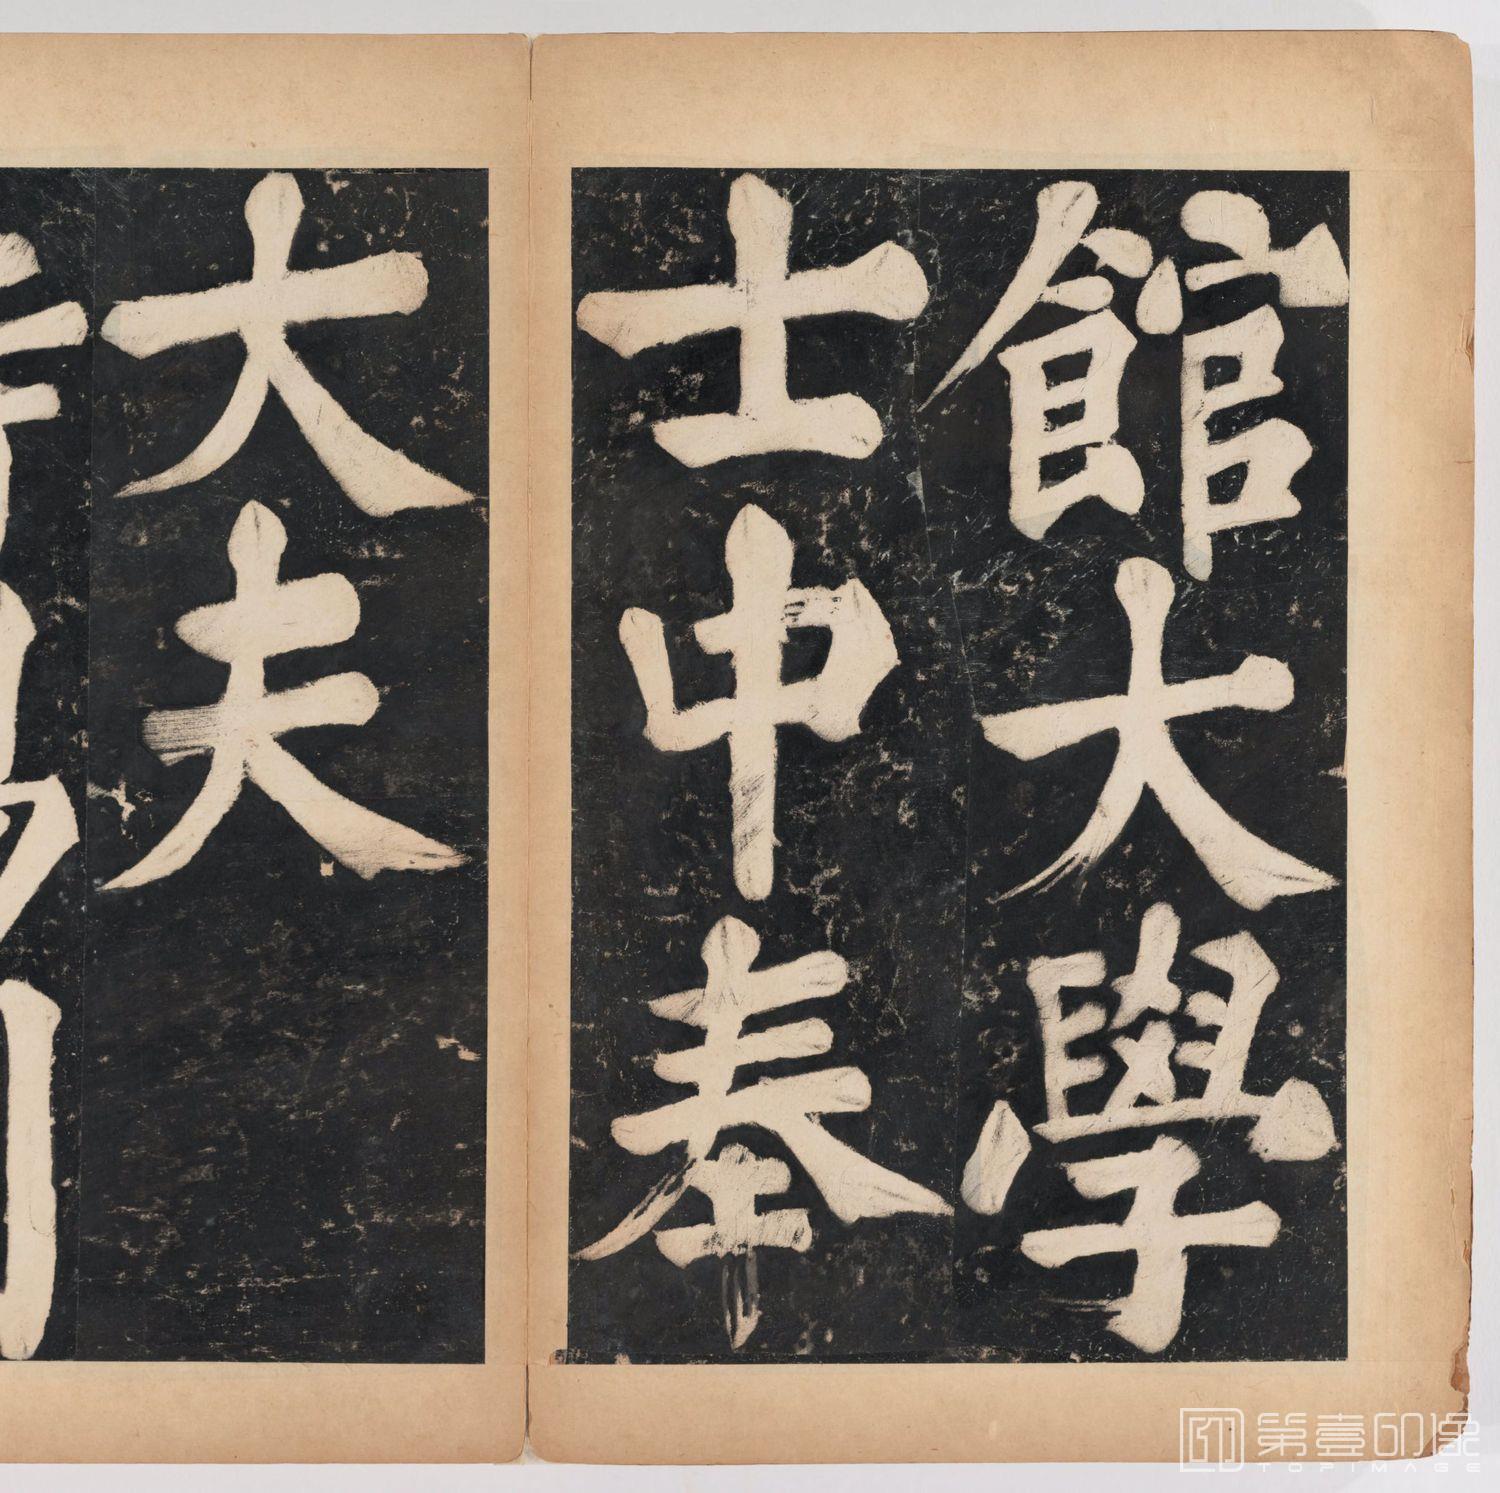 館大學
士中奉
大夫
第壹印像
TOPIMAGE